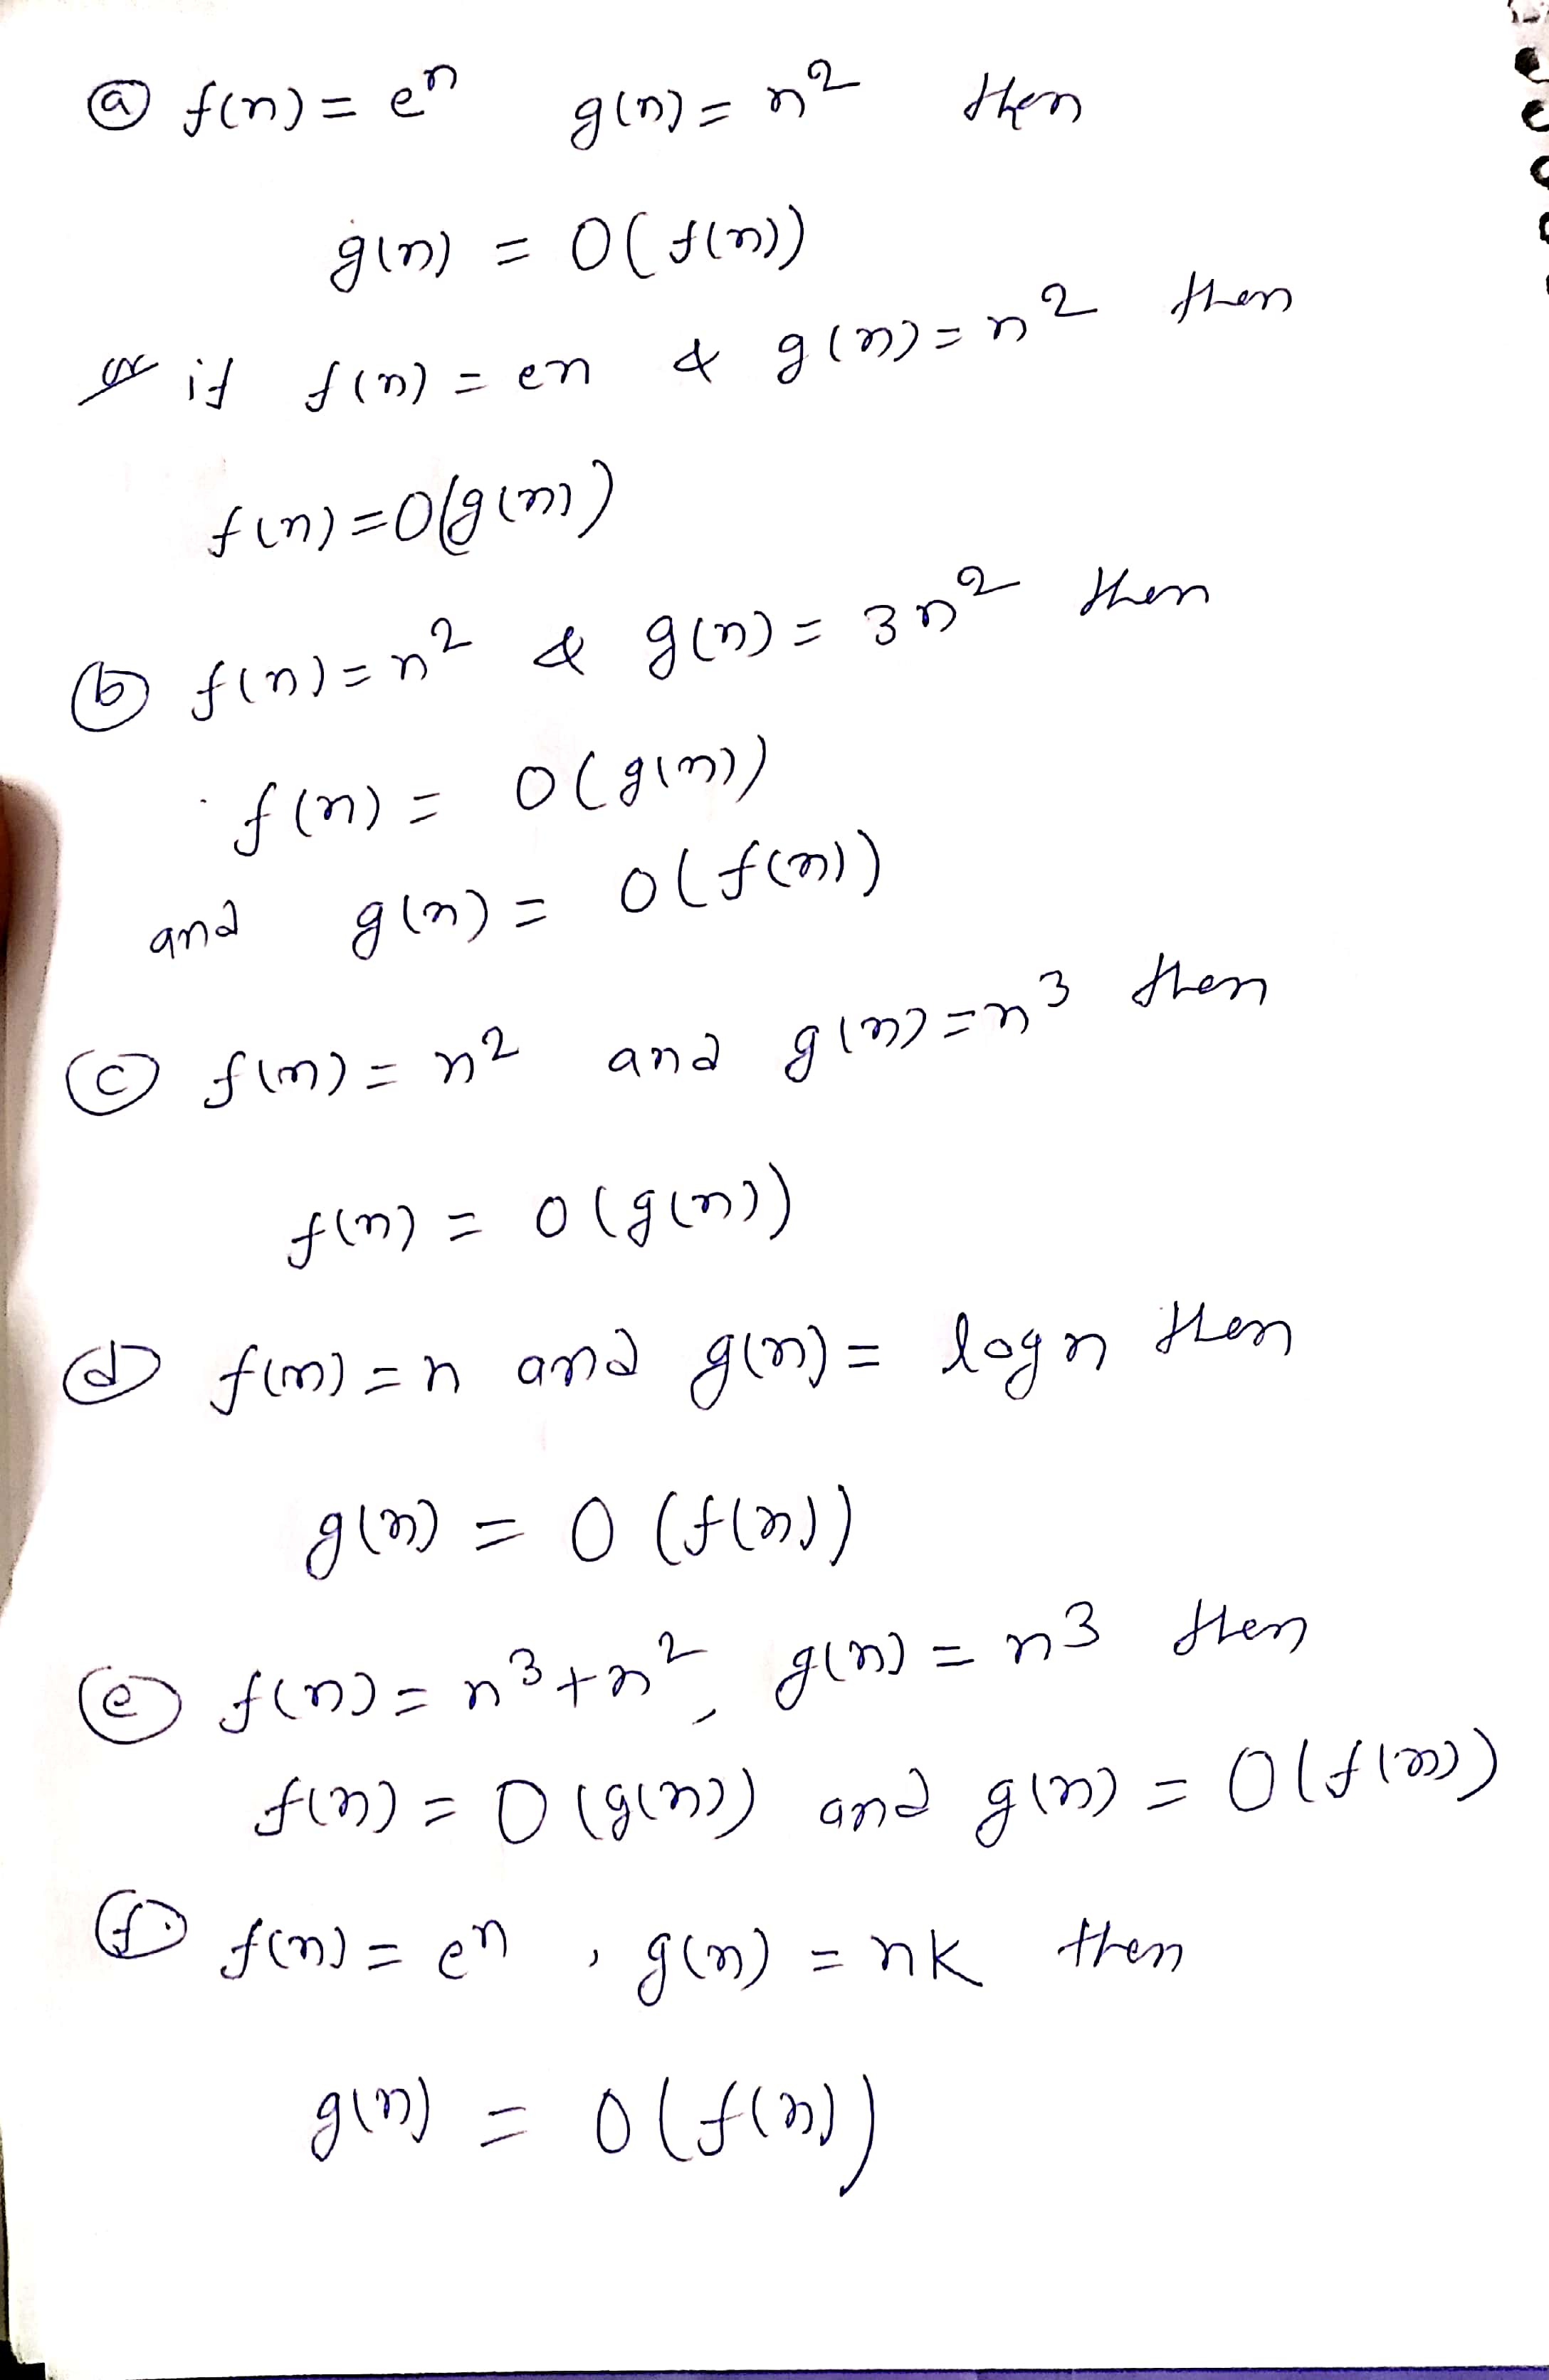 ⓐ f(n) = eⁿ g(n) = n² then
g(n) = O(f(n))
or if f(n) = en & g(n) = n² then
f(n) = O(g(n))
ⓑ f(n) = n² & g(n) = 3n² then
f(n) = O(g(n))
and g(n) = O(f(n))
ⓒ f(n) = n² and g(n) = n³ then
f(n) = O(g(n))
ⓓ f(n) = n and g(n) = log n then
g(n) = O(f(n))
ⓔ f(n) = n³+n², g(n) = n³ then
f(n) = O(g(n)) and g(n) = O(f(n))
ⓕ f(n) = eⁿ, g(n) = nk then
g(n) = O(f(n))